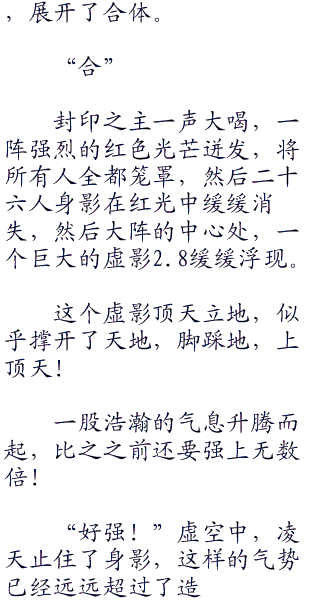 ，展开了合体。
“合”
封印之主一声大喝，一
阵强烈的红色光芒迸发，将
所有人全都笼罩，然后二十
六人身影在红光中缓缓消
失，然后大阵的中心处，一
个巨大的虚影2.8缓缓浮现。
这个虚影顶天立地，似
乎撑开了天地，脚踩地，上
顶天！
一股浩瀚的气息升腾而
起，比之之前还要强上无数
倍！
“好强！”虚空中，凌
天止住了身影，这样的气势
已经远远超过了造